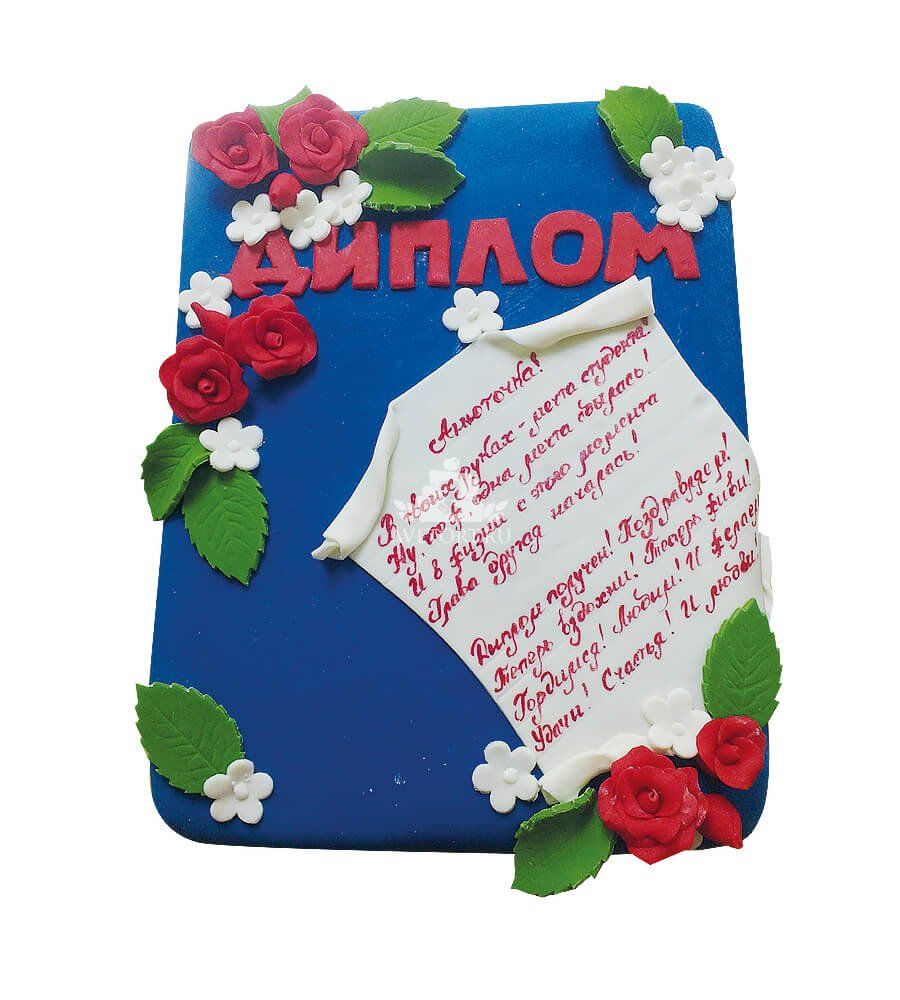 ДИПЛОМ
Анюточка!
В твоих руках - мечта студента!
Ну, что ж одна мечта сбылась!
И в жизни с этого момента
Глава другая началась!
Диплом получен! Поздравляем!
Теперь вздохни! Теперь живи!
Гордимся! Любим! И желаем
Удачи! Счастья! И любви!
AVETORT.RU